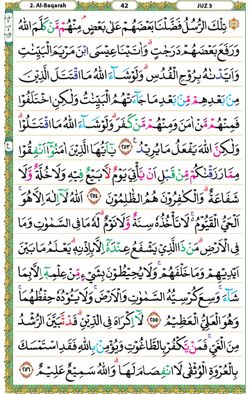 2. Al-Baqarah 42 JUZ 3
تِلْكَ الرُّسُلُ فَضَّلْنَا بَعْضَهُمْ عَلٰى بَعْضٍ مِّنْهُمْ مَّنْ كَلَّمَ اللّٰهُ
وَرَفَعَ بَعْضَهُمْ دَرَجٰتٍ وَّاٰتَيْنَا عِيْسَى ابْنَ مَرْيَمَ الْبَيِّنٰتِ
وَاَيَّدْنٰهُ بِرُوْحِ الْقُدُسِ وَلَوْ شَآءَ اللّٰهُ مَا اقْتَتَلَ الَّذِيْنَ
مِنْ بَعْدِهِمْ مِّنْ بَعْدِ مَا جَآءَتْهُمُ الْبَيِّنٰتُ وَلٰكِنِ اخْتَلَفُوْا
فَمِنْهُمْ مَّنْ اٰمَنَ وَمِنْهُمْ مَّنْ كَفَرَ وَلَوْ شَآءَ اللّٰهُ مَا اقْتَتَلُوْا
وَلٰكِنَّ اللّٰهَ يَفْعَلُ مَا يُرِيْدُ ۝٢٥٣ يٰٓاَيُّهَا الَّذِيْنَ اٰمَنُوْٓا اَنْفِقُوْا
مِمَّا رَزَقْنٰكُمْ مِّنْ قَبْلِ اَنْ يَّأْتِيَ يَوْمٌ لَّا بَيْعٌ فِيْهِ وَلَا خُلَّةٌ وَّلَا
شَفَاعَةٌ وَالْكٰفِرُوْنَ هُمُ الظّٰلِمُوْنَ ۝٢٥٤ اَللّٰهُ لَآ اِلٰهَ اِلَّا هُوَ
الْحَيُّ الْقَيُّوْمُ لَا تَأْخُذُهٗ سِنَةٌ وَّلَا نَوْمٌ لَهٗ مَا فِى السَّمٰوٰتِ وَمَا
فِى الْاَرْضِ مَنْ ذَا الَّذِيْ يَشْفَعُ عِنْدَهٗٓ اِلَّا بِاِذْنِهٖ يَعْلَمُ مَا بَيْنَ
اَيْدِيْهِمْ وَمَا خَلْفَهُمْ وَلَا يُحِيْطُوْنَ بِشَيْءٍ مِّنْ عِلْمِهٖٓ اِلَّا بِمَا
شَآءَ وَسِعَ كُرْسِيُّهُ السَّمٰوٰتِ وَالْاَرْضَ وَلَا يَـُٔوْدُهٗ حِفْظُهُمَا
وَهُوَ الْعَلِيُّ الْعَظِيْمُ ۝٢٥٥ لَآ اِكْرَاهَ فِى الدِّيْنِ قَدْ تَّبَيَّنَ الرُّشْدُ
مِنَ الْغَيِّ فَمَنْ يَّكْفُرْ بِالطَّاغُوْتِ وَيُؤْمِنْ بِاللّٰهِ فَقَدِ اسْتَمْسَكَ
بِالْعُرْوَةِ الْوُثْقٰى لَا انْفِصَامَ لَهَا وَاللّٰهُ سَمِيْعٌ عَلِيْمٌ ۝٢٥٦